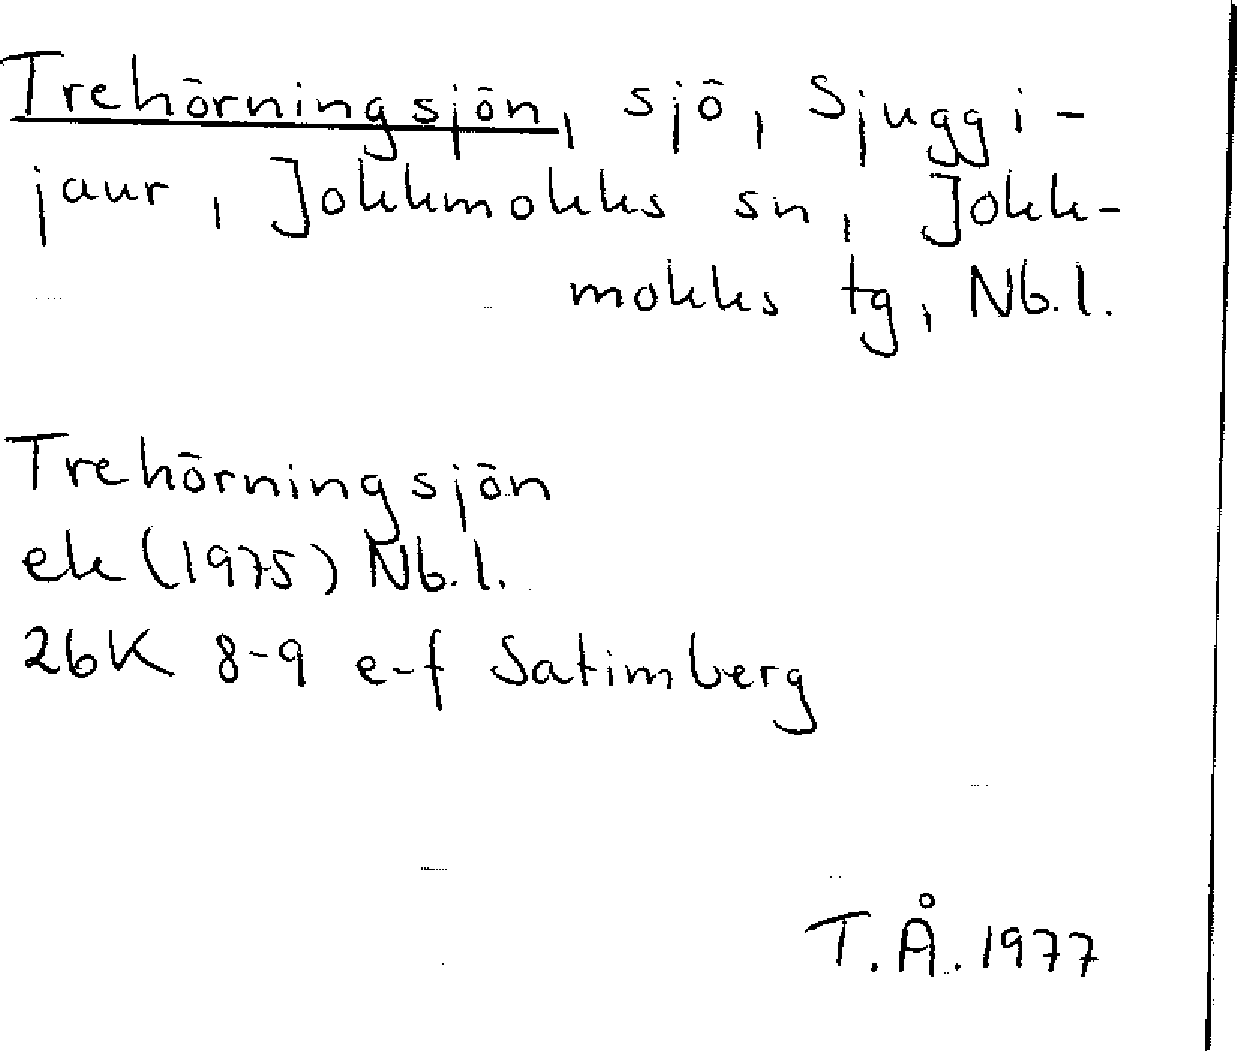 Trehörningsjön, sjö, Sjuggi-
jaur, Jokkmokks sn, Jokk-
mokks tg, Nb.l.
Trehörningsjön
ek (1975) Nb.l.
26K 8-9 e-f Satimberg
T.Å. 1977